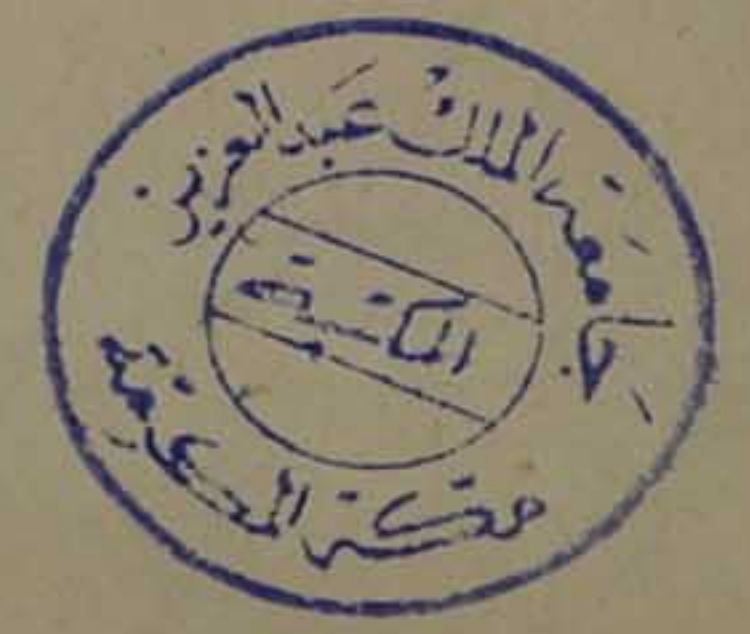 جَامعَة الملك عَبد العزيز
المكتبة
مكة المكرمة